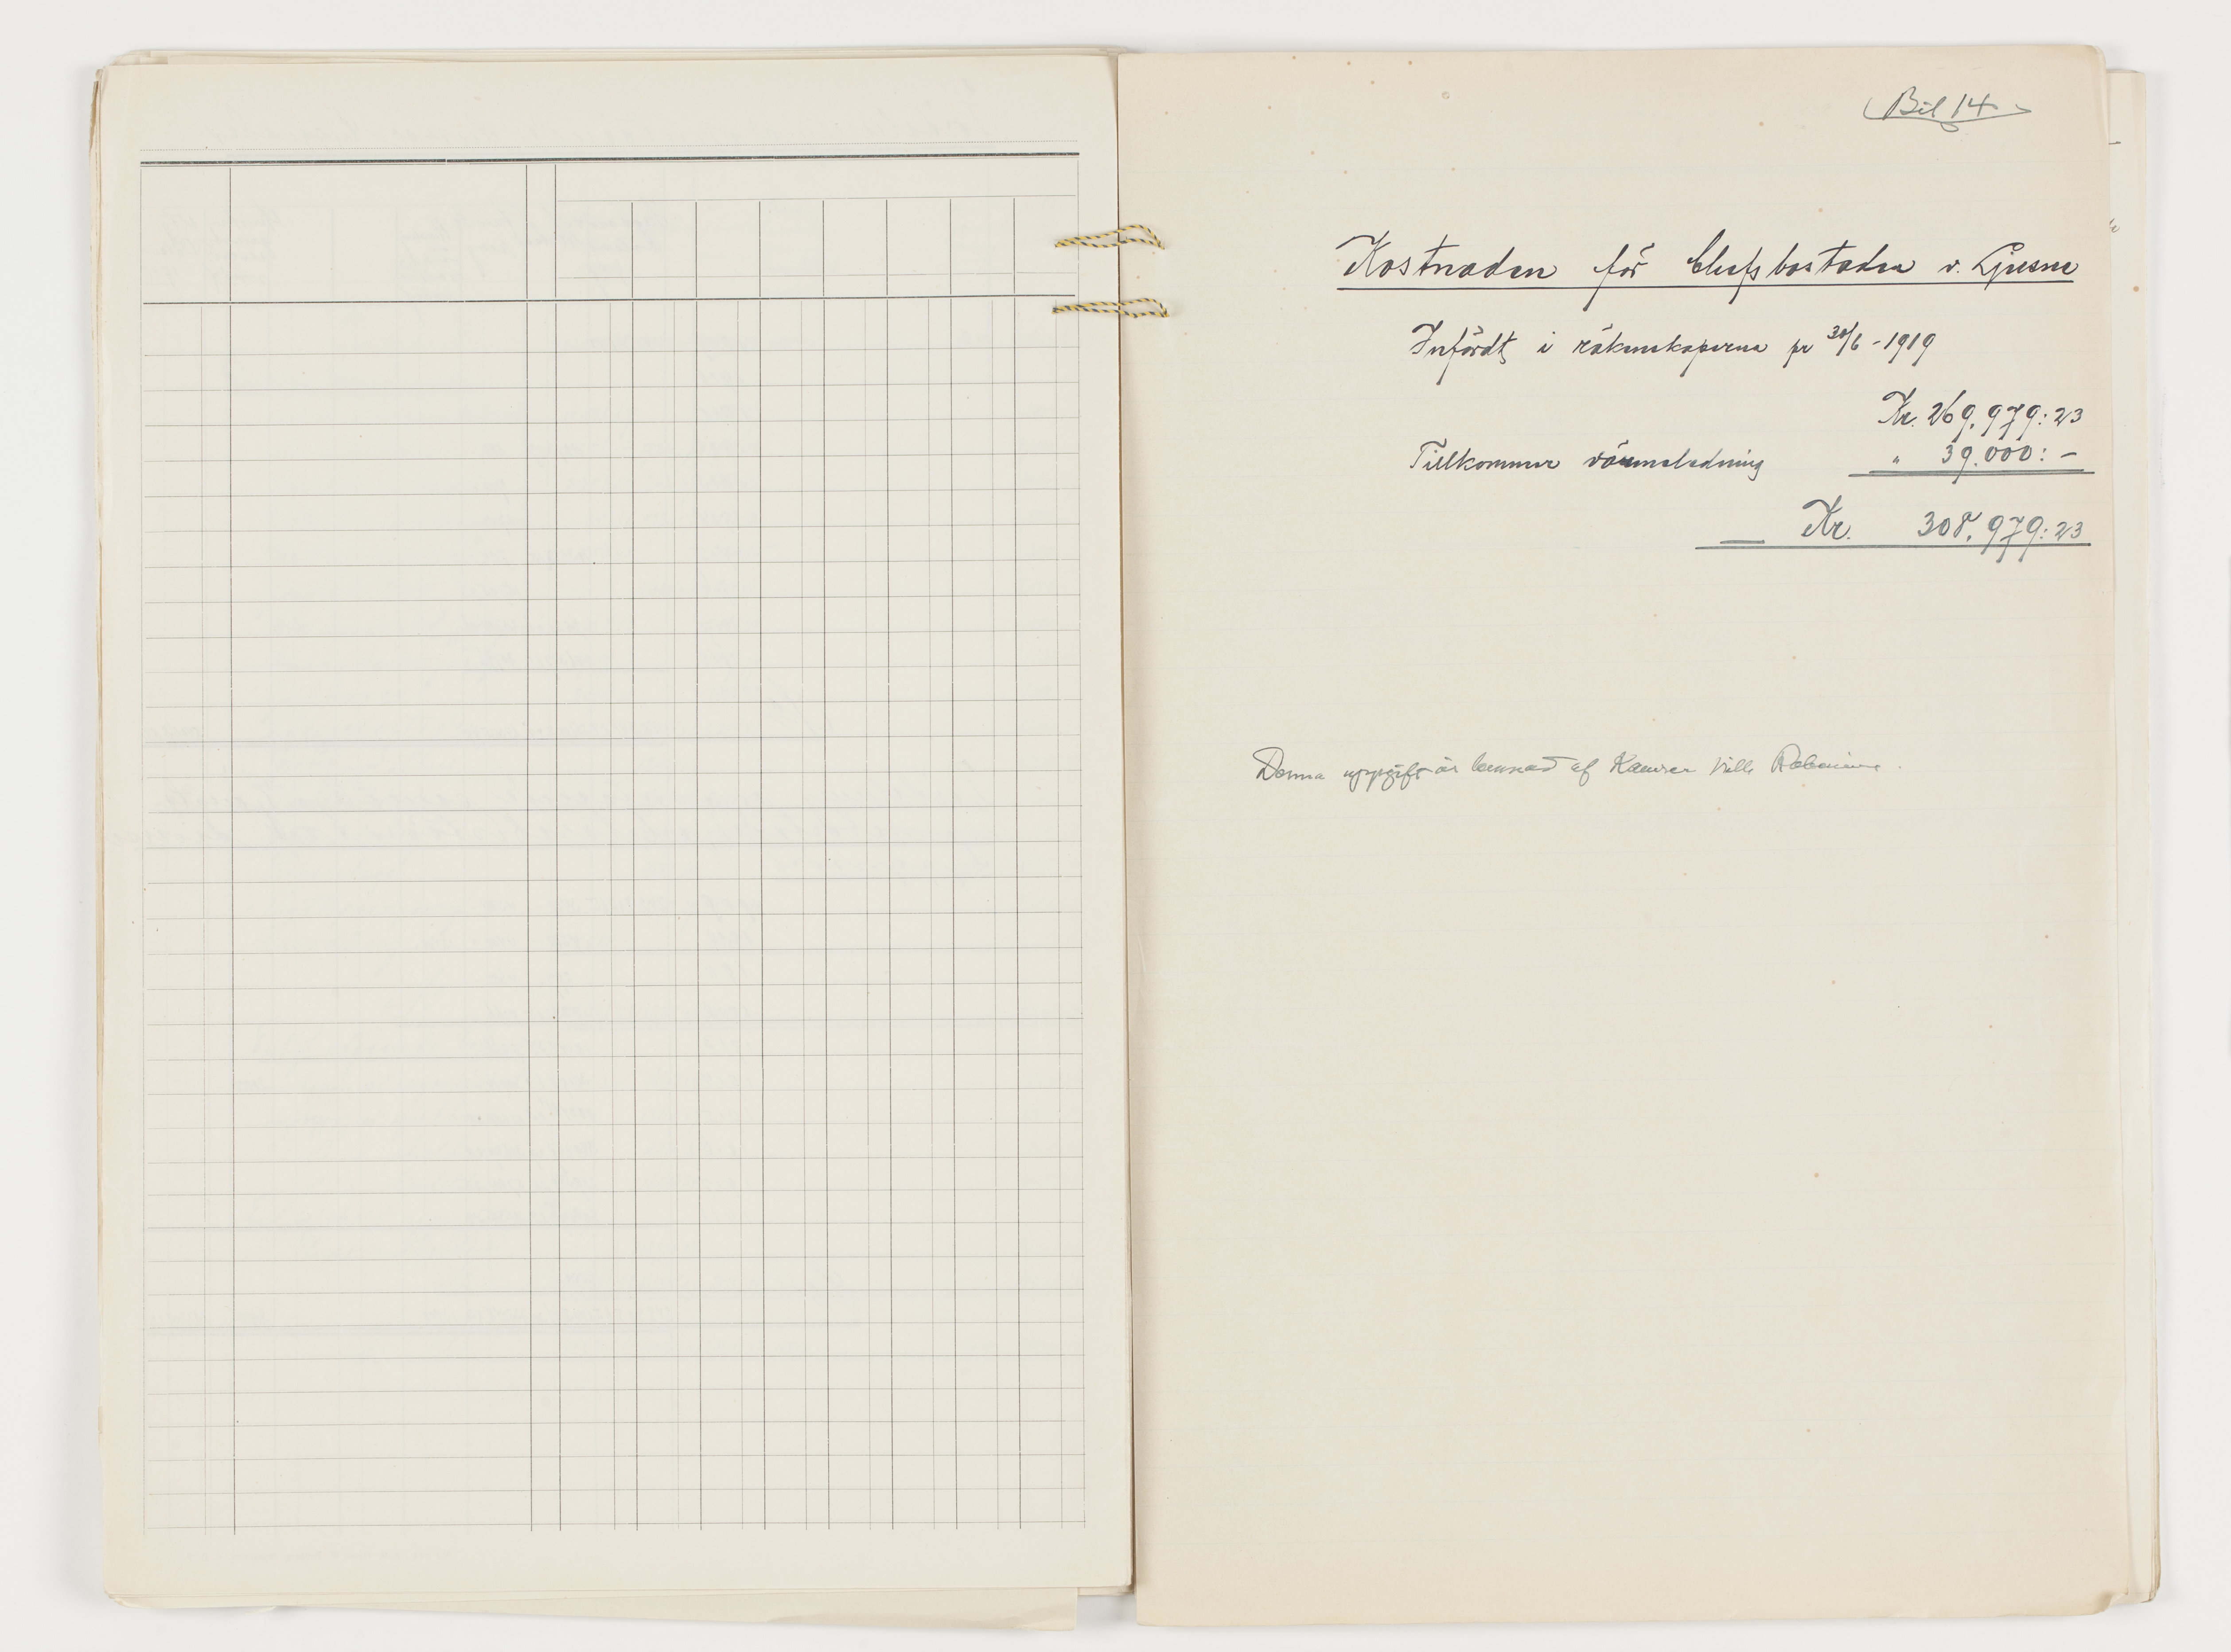 Bil 14
Kostnaden för Chefsbostaden v. Ljusne
Infördt i räkenskaperna pr 30/6 - 1919
Kr. 269.979:23
Tillkommer värmeledning " 39.000:-
Kr. 308.979:23
Denna uppgift är lemnad af Kamrer